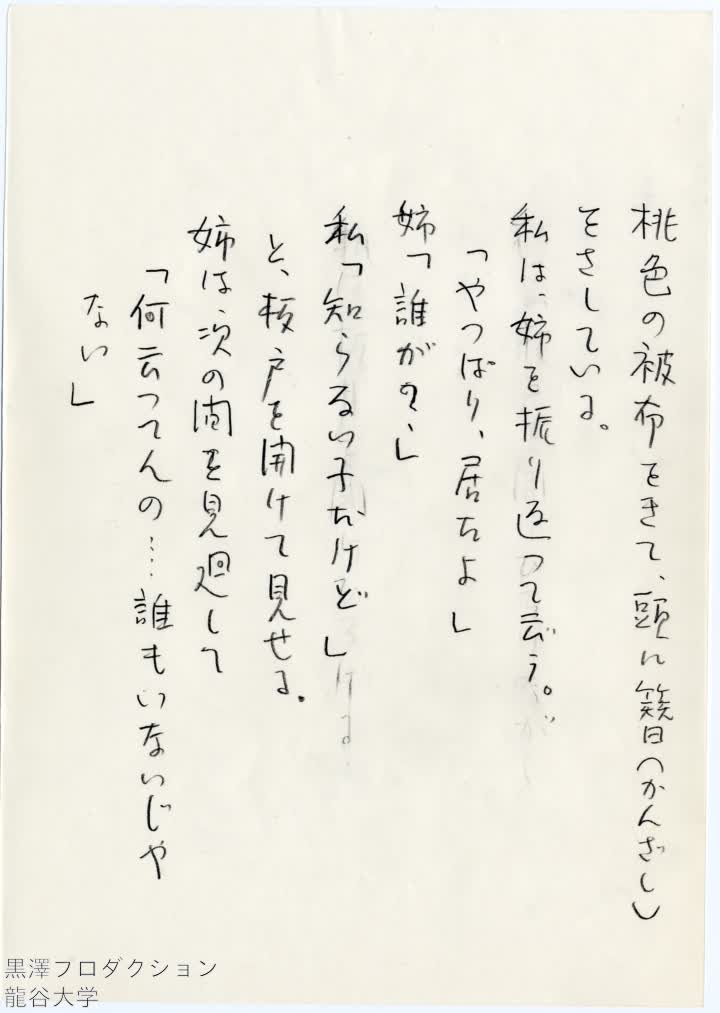 桃色の被布をきて、頭に簪(かんざし)
をさしている。
私は、姉を振り返って云う。
「やっぱり、居たよ」
姉「誰がの、」
私「知らない子だけど」
と、板戸を開けて見せる。
姉は、次の間を見廻して
「何云ってんの……誰もいないじゃ
ない」
黒澤プロダクション
龍谷大学